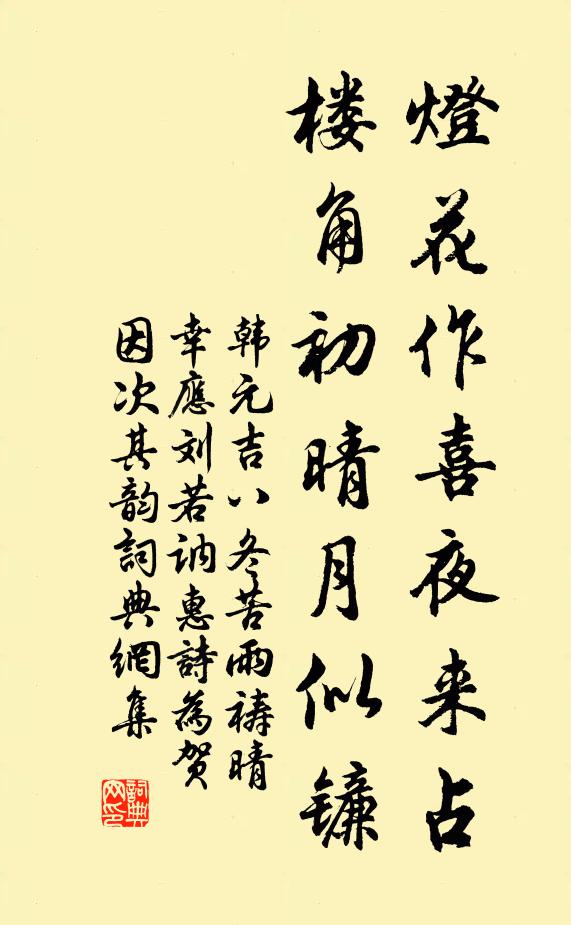 燈花作喜夜来占
楼角初晴月似镰
韩元吉八冬苦雨祷晴
幸應刘若讷惠詩為贺
因次其韵詞典網集
詞典
网印